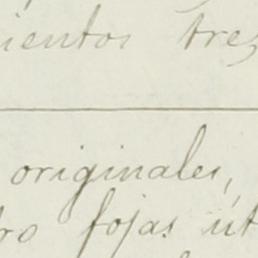 ientos tres
originales,
ro fojas út